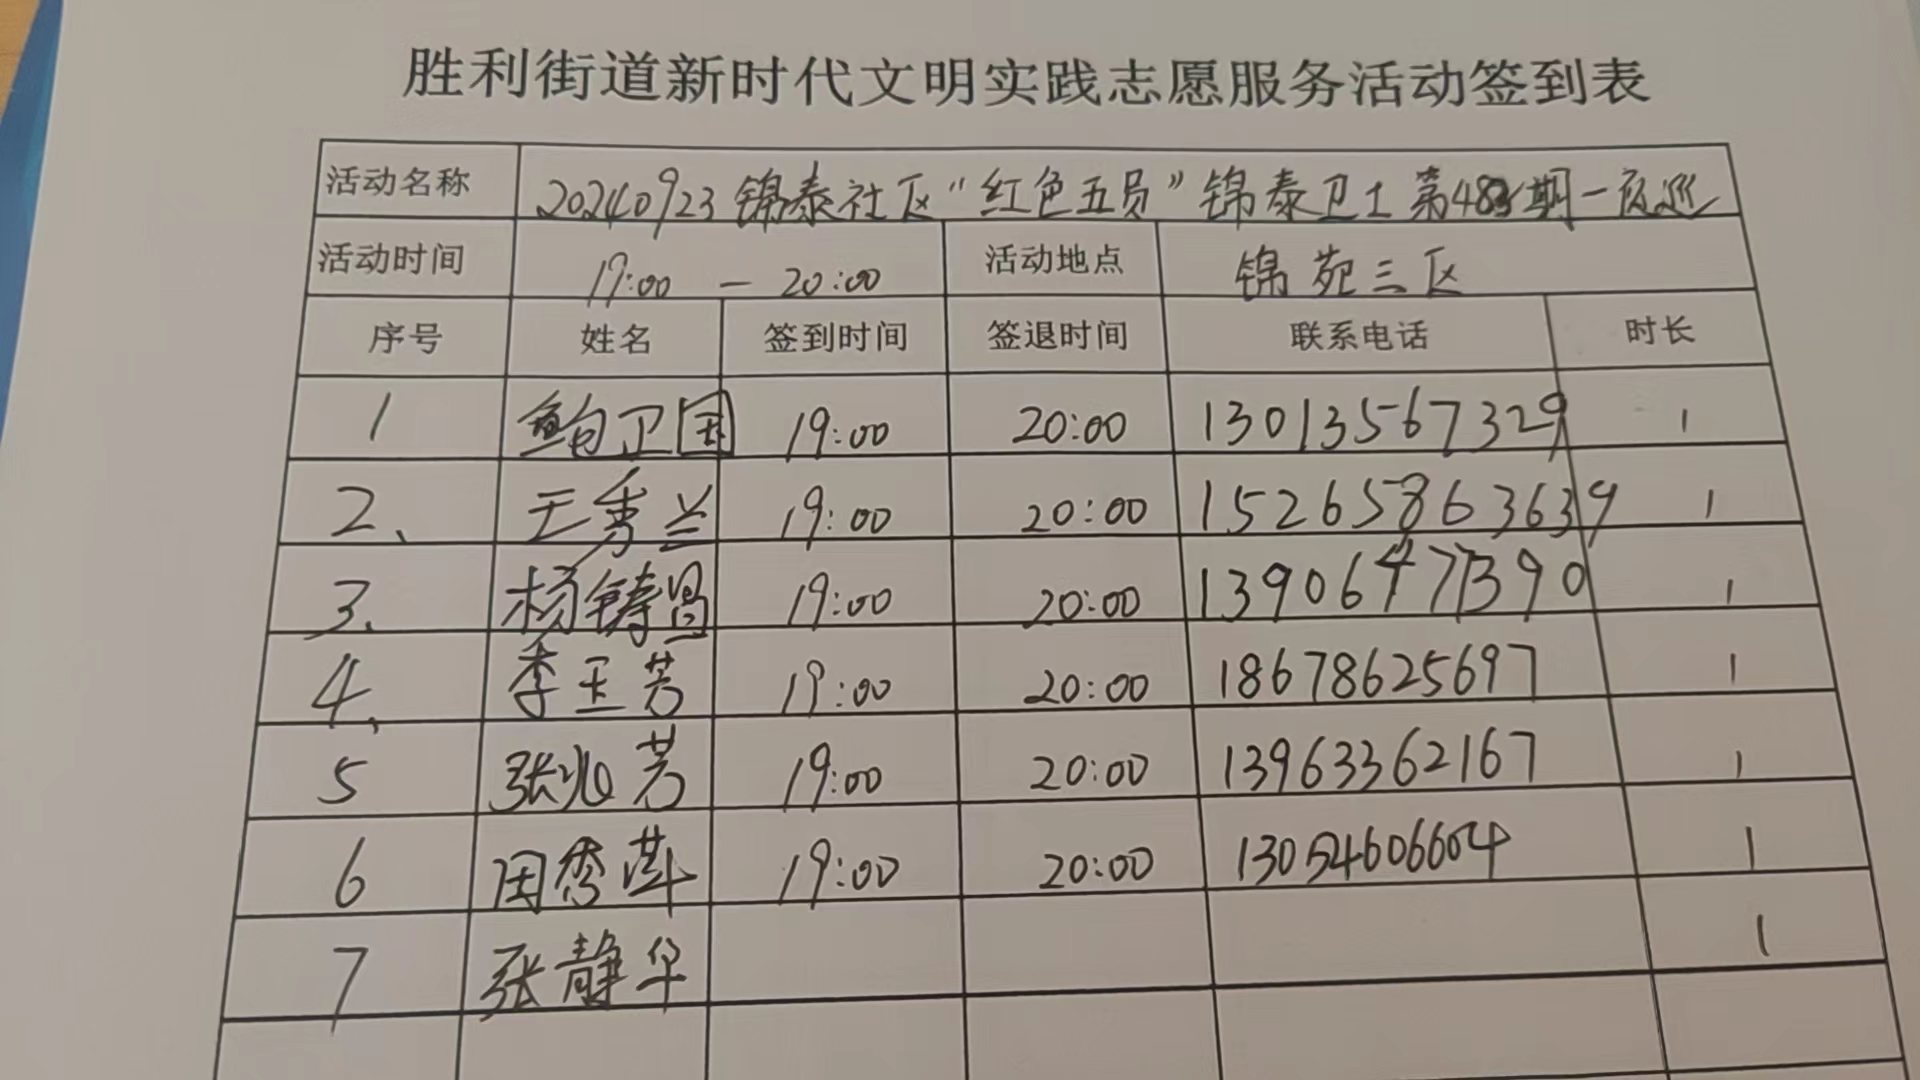 胜利街道新时代文明实践志愿服务活动签到表
活动名称 20240923锦泰社区“红色五员”锦泰卫士第483期一夜巡
活动时间 19:00 — 20:00 活动地点 锦苑三区
序号 姓名 签到时间 签退时间 联系电话 时长
1 鲍卫国 19:00 20:00 13013567329 1
2、 王秀兰 19:00 20:00 15265863639 1
3、 杨铸昌 19:00 20:00 13906471390 1
4、 李玉芳 19:00 20:00 18678625697 1
5 张兆芳 19:00 20:00 13963362167 1
6 周秀 19:00 20:00 13054606604 1
7 张静华 1